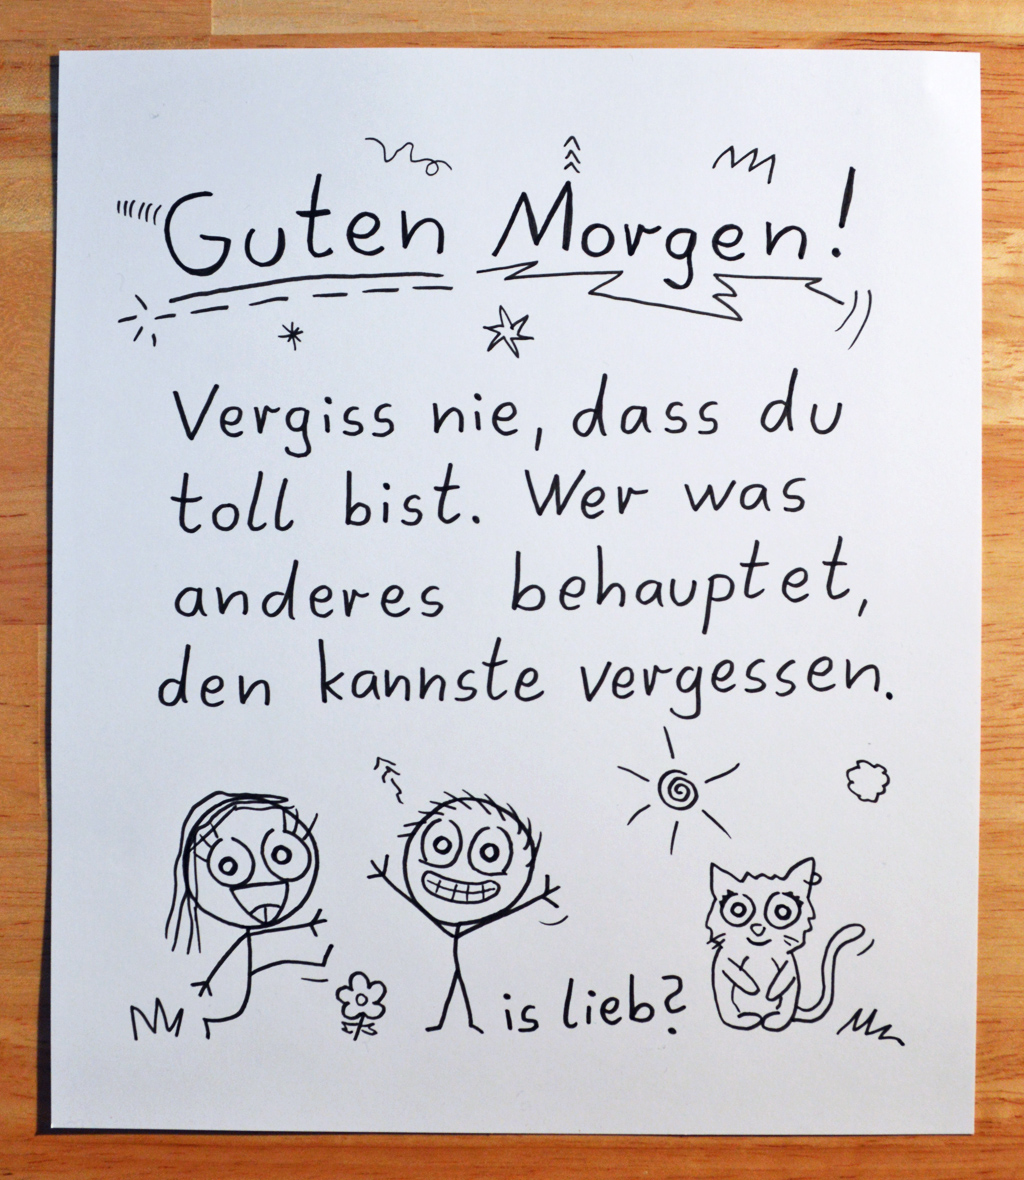 Guten Morgen!
Vergiss nie, dass du
toll bist. Wer was
anderes behauptet,
den kannste vergessen.
is lieb?